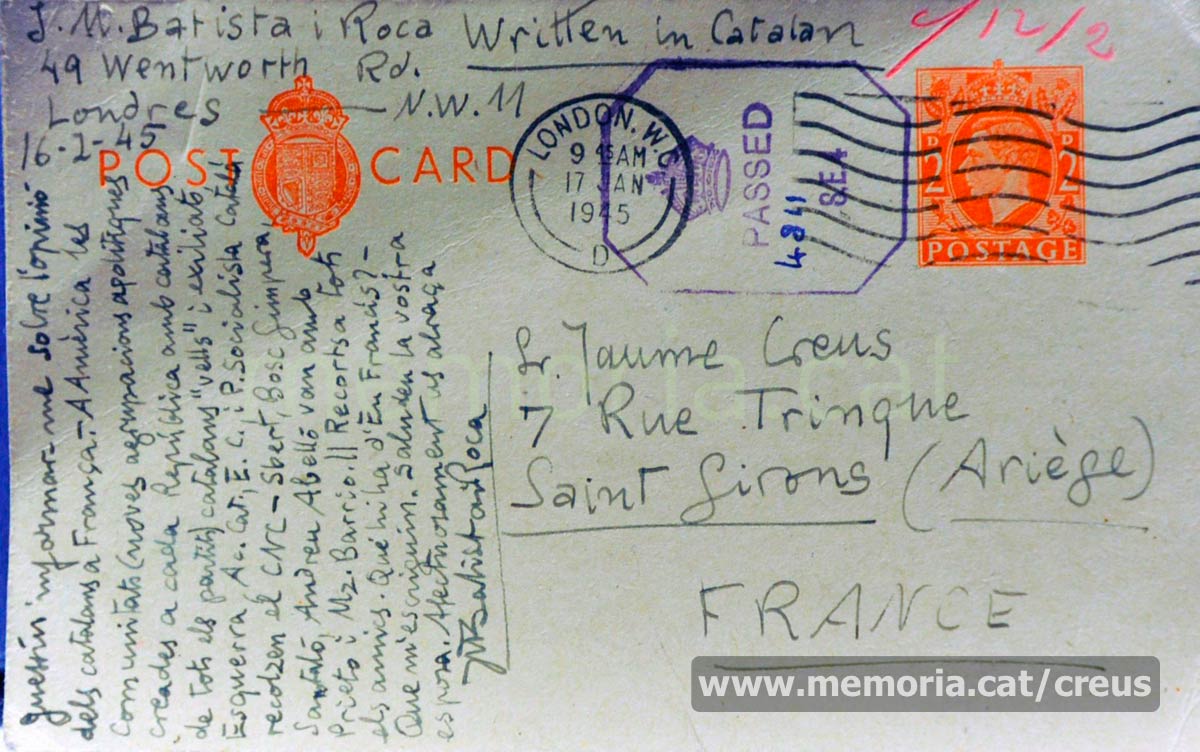 J. M. Batista i Roca Written in Catalan
49 Wentworth Rd.
Londres — N.W. 11
16-1-45
POST CARD
LONDON. W.C
9 15 AM
17 JAN
1945
D
PASSED
8E4
4841
2D 2D
POSTAGE
Sr. Jaume Creus
7 Rue Trinque
Saint Girons (Ariège)
FRANCE
informar-me sobre l'opinió
dels catalans a França. – A Amèrica les
comunitats (noves agrupacions apolítiques
creades a cada República amb catalans
de tots els partits) catalans "vells" i exiliats,
Esquerra, Ac. Cat, E. C. i P. Socialista Català
recolzen el CNC – Sbert, Bosc Gimpera
Santaló, Andreu Abelló van amb
Prieto i Mz. Barrio. || Recorts a tots
els amics. Què hi ha d'En Francás? –
Que m'escriguin. Saluden la vostra
esposa. Afectuosament us abraça
JMBatista i Roca
memoria.cat
www.memoria.cat/creus